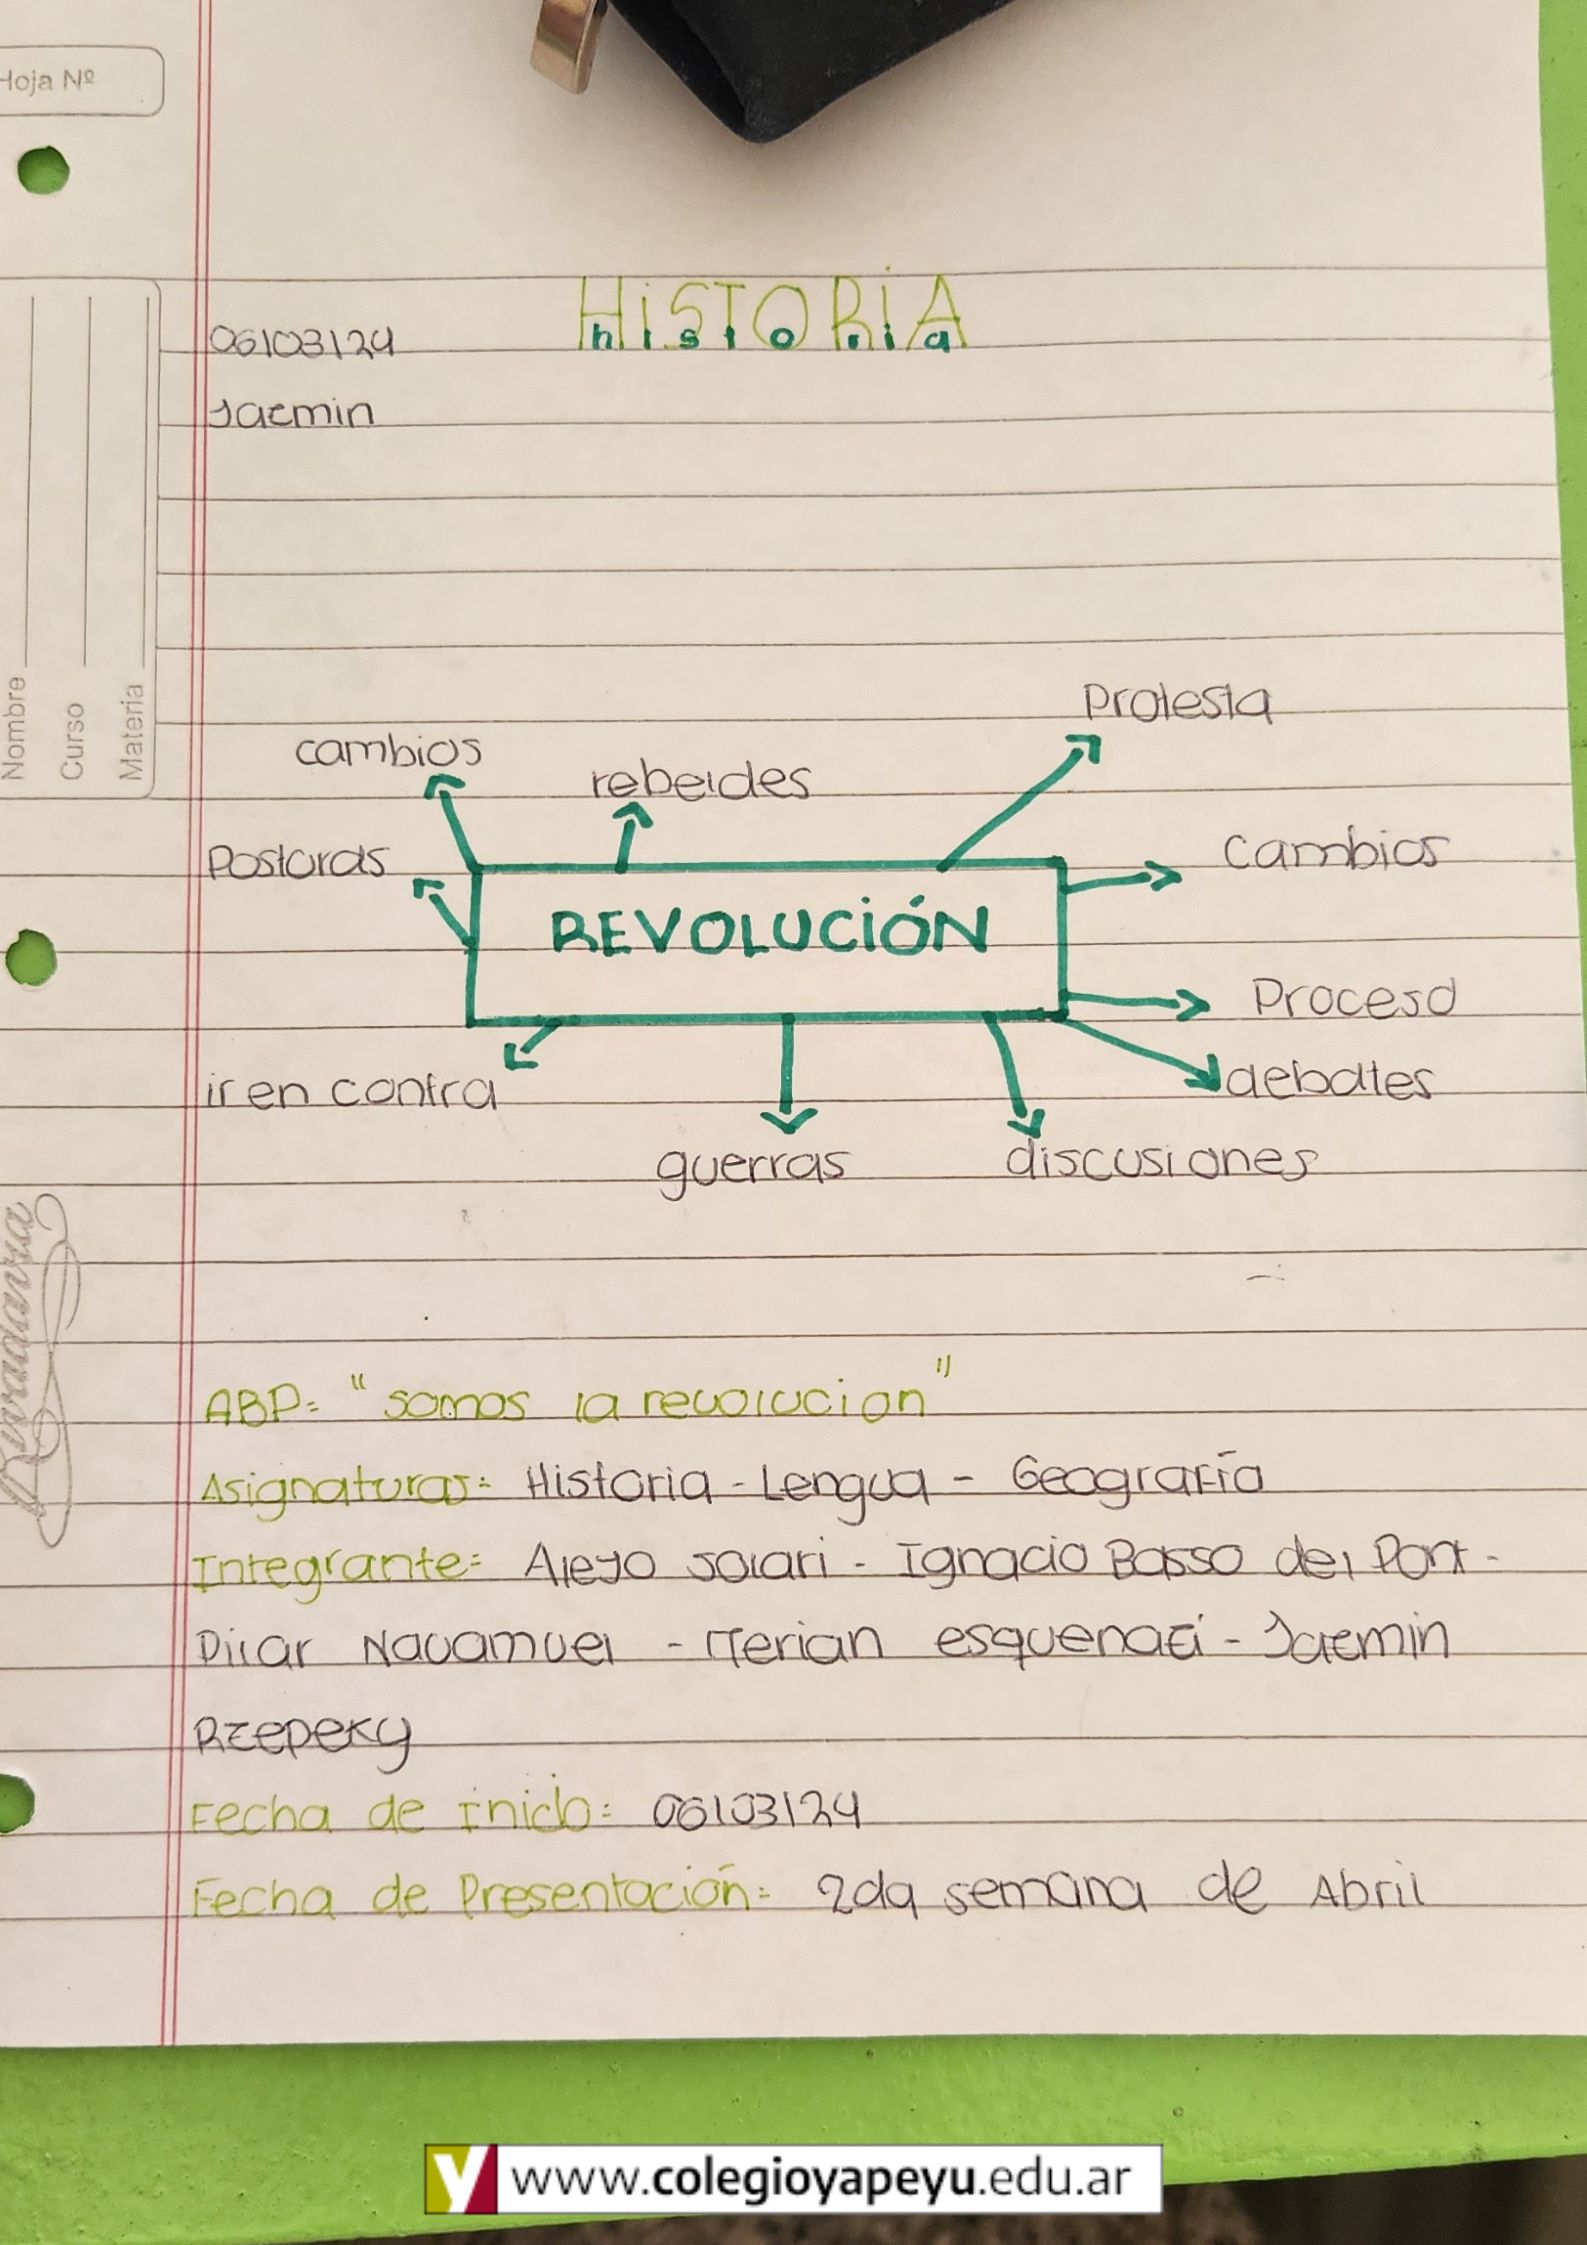 Hoja Nº
HISTORIA
historia
06/03/24
Jazmin
Nombre
Curso
Materia
Protesta
cambios
rebeldes
Posturas
cambios
REVOLUCIÓN
Proceso
ir en contra
debates
guerras
discusiones
Rivadavia
ABP: "somos la revolucion"
Asignaturas: Historia - Lengua - Geografía
Integrante: Alejo Solari - Ignacio Basso del Pont -
Pilar Navamuel - Merian esquenazi - Jazmin
Rzepeky
Fecha de inicio: 06/03/24
Fecha de Presentación: 2da semana de Abril
y www.colegioyapeyu.edu.ar